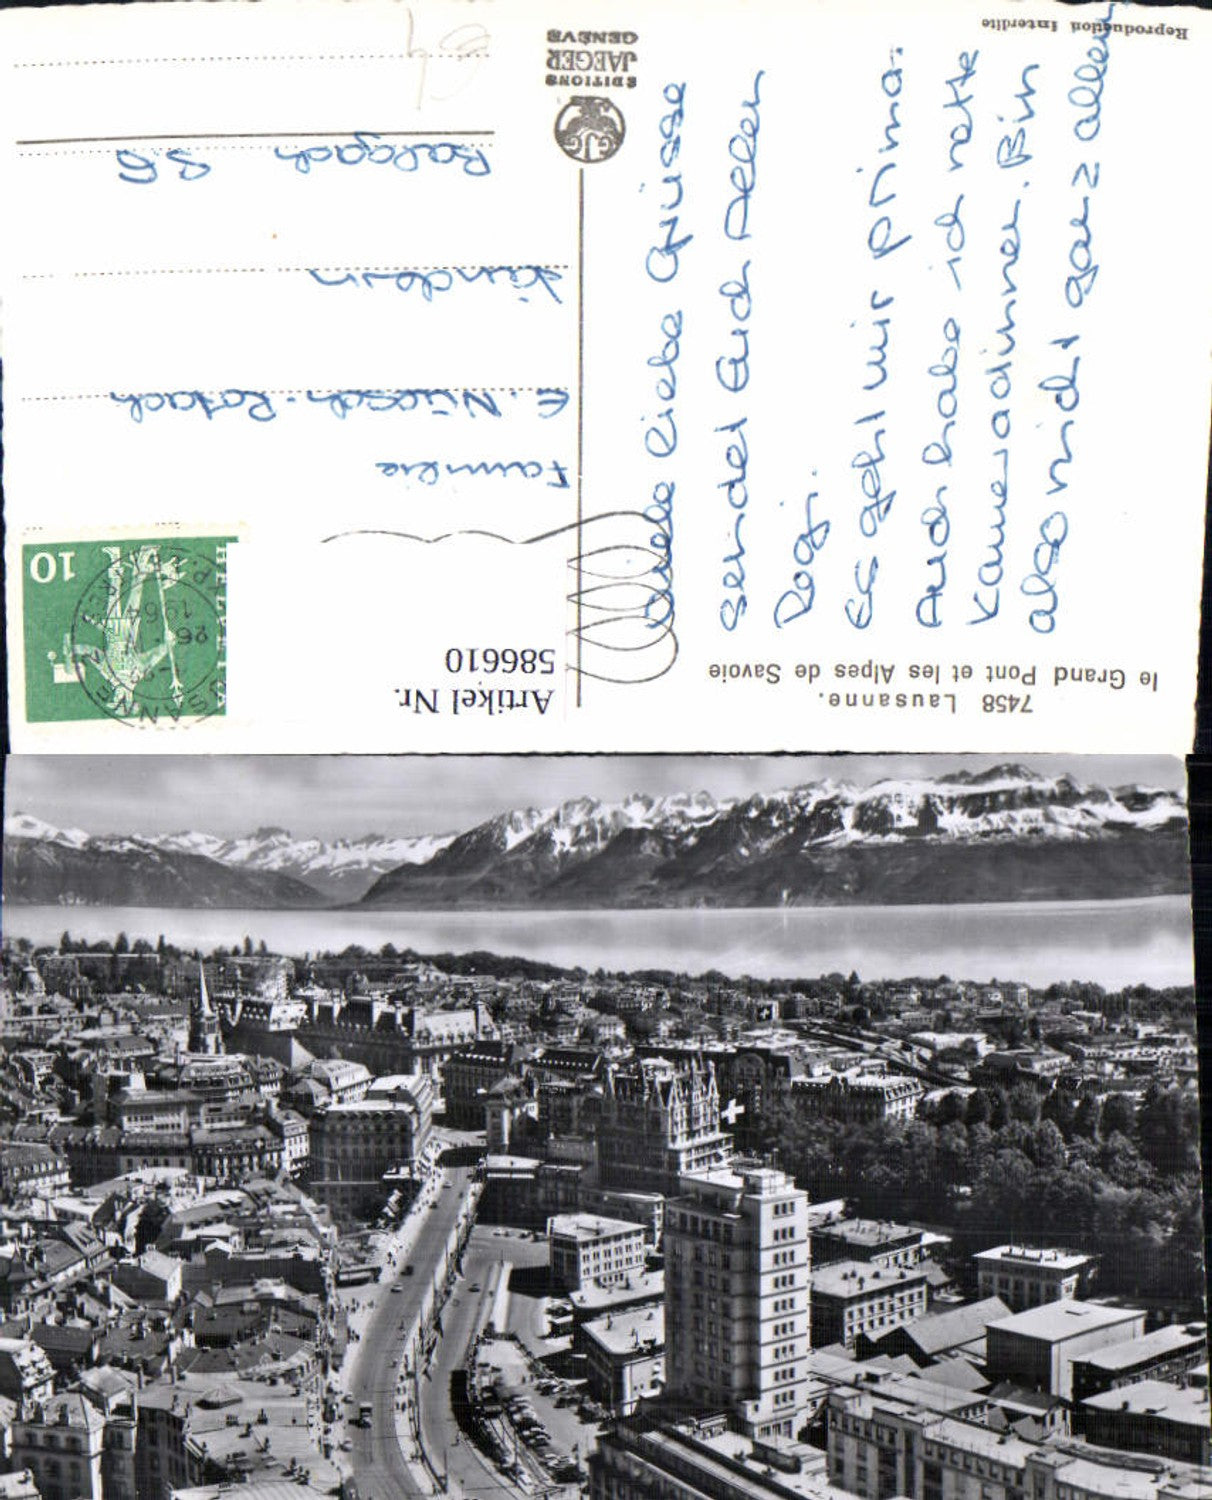 7458 Lausanne.
le Grand Pont et les Alpes de Savoie
Viele liebe Grüsse
sendet Euch Allen
Es geht mir prima.
Auch habe ich nette
Kameradinnen. Bin
also nicht ganz allein
Artikel Nr.
586610
HELVETIA
10
LAUSANNE
26
1964
EXP. LETTRES
Familie
E. Nüesch-Rotach
Balgach SG
EDITIONS
JAEGER
GENÈVE
GJG
Reproduction interdite